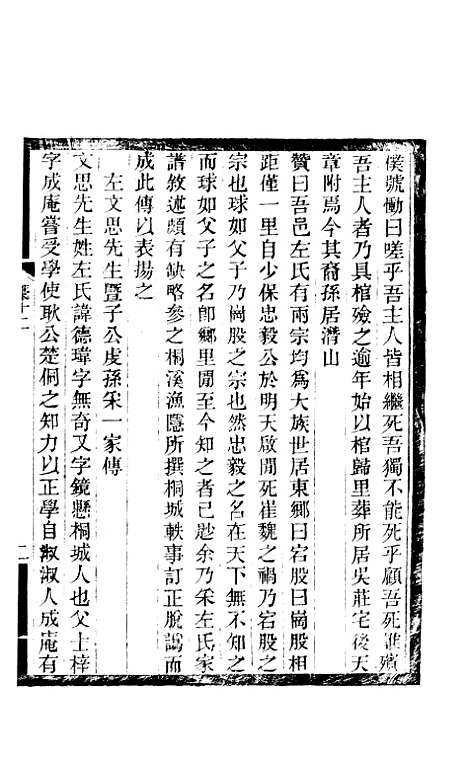 僕號慟曰嗟乎吾主人皆相繼死吾獨不能死乎顧吾死誰殯
吾主人者乃具棺殮之逾年始以棺歸里葬所居吳莊宅後天
章附焉今其裔孫居潛山
贊曰吾邑左氏有兩宗均爲大族世居東鄉曰宕股曰崗股相
距僅一里自少保忠毅公於明天啟閒死崔魏之禍乃宕股之
宗也球如父子乃崗股之宗也然忠毅之名在天下無不知之
而球如父子之名卽鄉里閒至今知之者已尠余乃采左氏家
譜敘述頗有缺略參之桐溪漁隱所撰桐城軼事訂正脫譌而
成此傳以表揚之
左文思先生暨子公虔孫采一家傳
文思先生姓左氏諱德瑋字無奇又字鏡懸桐城人也父士梓
字成庵嘗受學使耿公楚侗之知力以正學自淑淑人成庵有